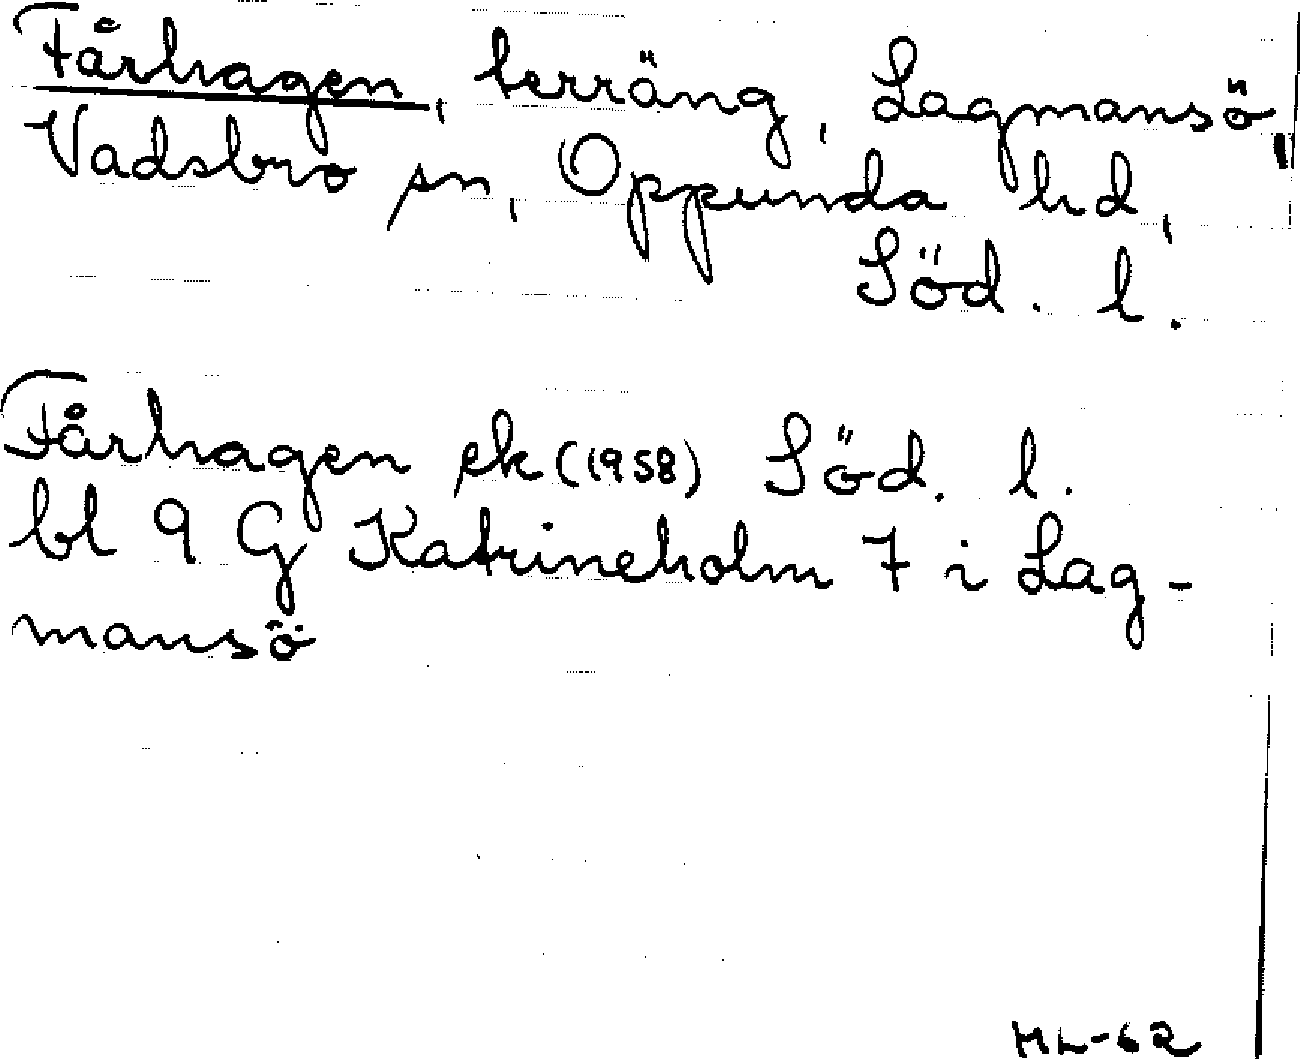 Fårhagen, terräng, Lagmansö,
Vadsbro sn, Oppunda hd,
Söd. l.
Fårhagen ek (1958) Söd. l.
bl 9 G Katrineholm 7 i Lag-
mansö
ML-62